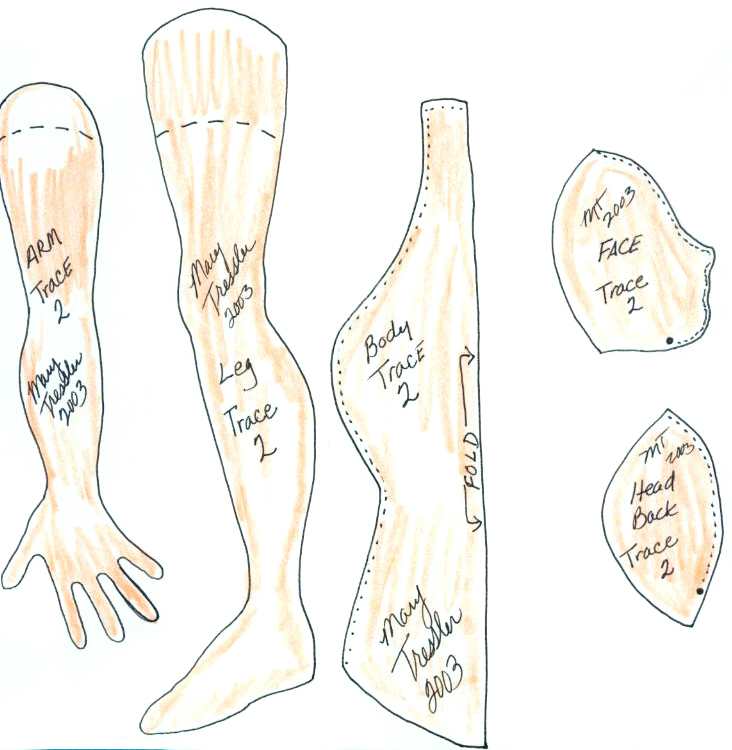 ARM
Trace
2
Mary
Tressler
2003
Mary
Tressler
2003
Leg
Trace
2
Body
Trace
2
FOLD
Mary
Tressler
2003
MT
2003
FACE
Trace
2
MT
2003
Head
Back
Trace
2